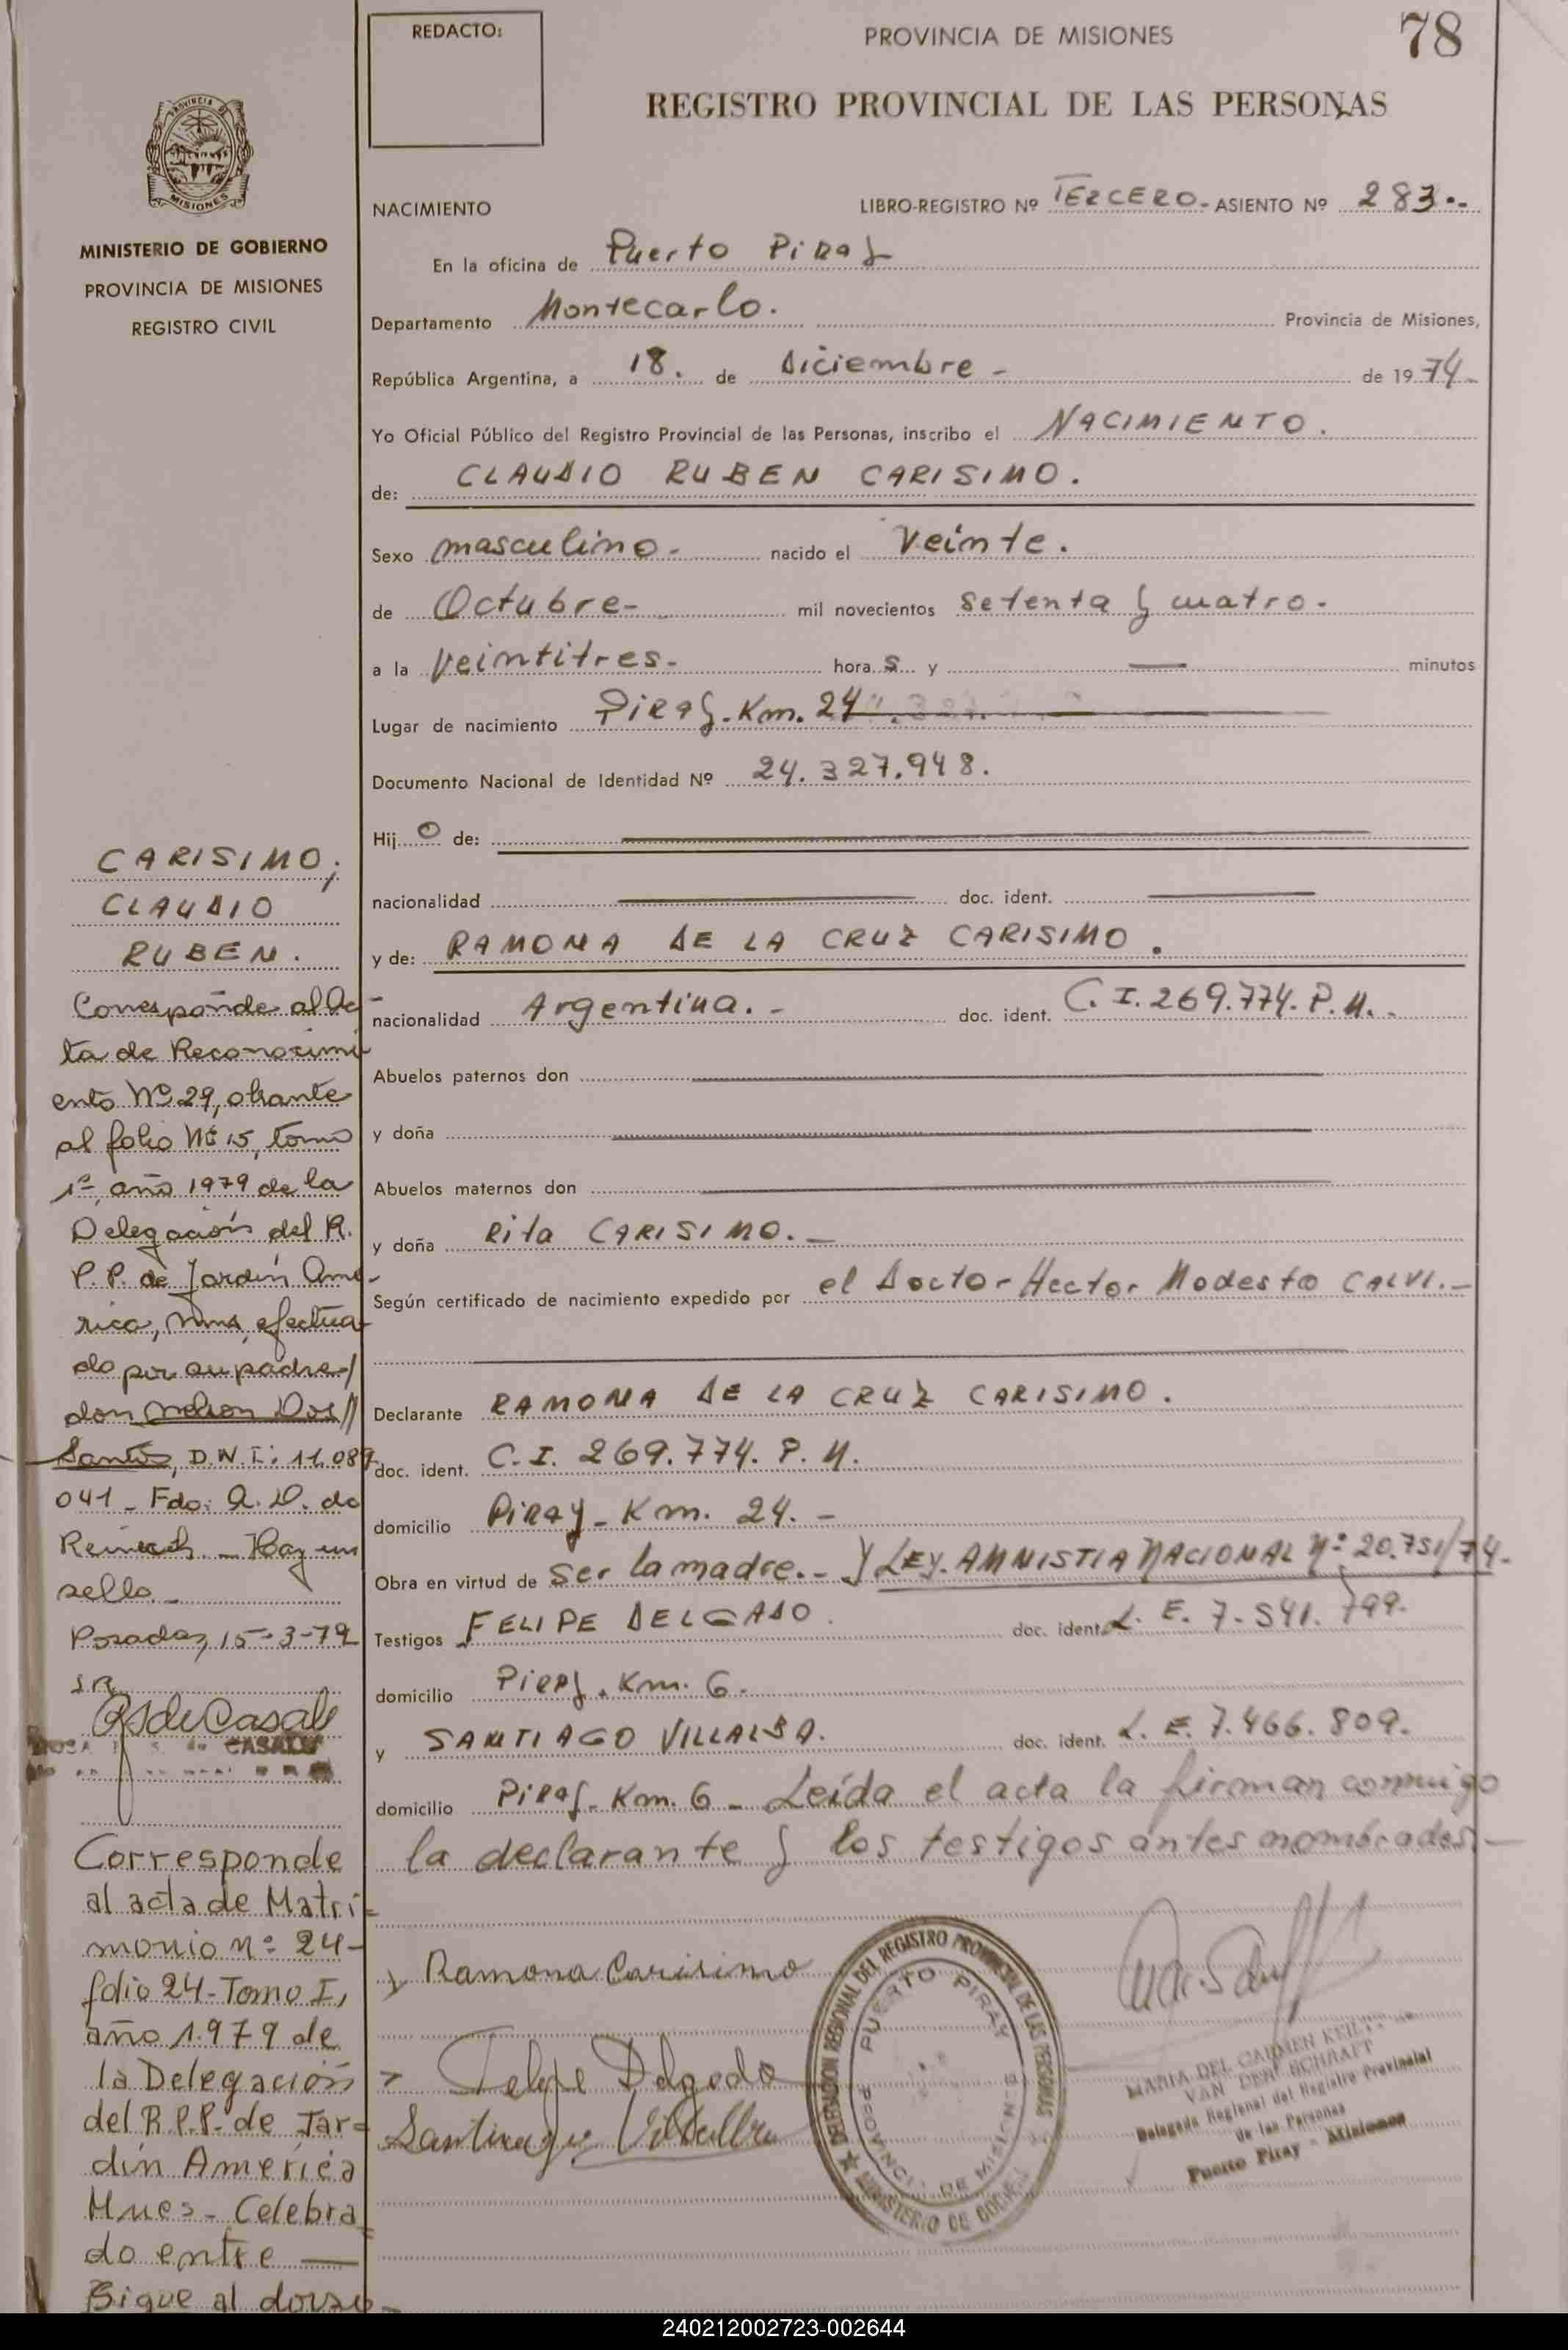 REDACTO:
PROVINCIA DE MISIONES
78
REGISTRO PROVINCIAL DE LAS PERSONAS
MISIONES
MINISTERIO DE GOBIERNO
PROVINCIA DE MISIONES
REGISTRO CIVIL
NACIMIENTO
LIBRO-REGISTRO Nº TERCERO.- ASIENTO Nº 283.-
En la oficina de Puerto Piray
Departamento Montecarlo. Provincia de Misiones,
República Argentina, a 18. de Diciembre - de 1974.-
Yo Oficial Público del Registro Provincial de las Personas, inscribo el NACIMIENTO.
de: CLAUDIO RUBEN CARISIMO.
Sexo masculino.- nacido el Veinte.
de Octubre- mil novecientos setenta y cuatro.
a la Veintitres.- hora s y — minutos
Lugar de nacimiento Piray-Km. 24
Documento Nacional de Identidad Nº 24.327.948.
Hijo de:
nacionalidad doc. ident.
y de: RAMONA DE LA CRUZ CARISIMO.
nacionalidad Argentina.- doc. ident. C.I. 269.774. P.M.
Abuelos paternos don
y doña
Abuelos maternos don
y doña Rita CARISIMO.-
Según certificado de nacimiento expedido por el Doctor Hector Modesto CALVI.-
Declarante RAMONA DE LA CRUZ CARISIMO.
doc. ident. C.I. 269.774. P.M.
domicilio Piray-Km. 24.-
Obra en virtud de ser la madre.- y LEY. AMNISTIA NACIONAL Nº 20.751/74.-
Testigos FELIPE DELGADO. doc. ident. L.E. 7.541.799.
domicilio Piray. Km. 6.
y SANTIAGO VILLALBA. doc. ident. L.E. 7.466.809.
domicilio Piray-Km. 6 - Leída el acta la firman conmigo
la declarante y los testigos antes nombrados.-
Ramona Carisimo
Felipe Delgado
Santiago Villalba
CARISIMO,
CLAUDIO
RUBEN.
Corresponde al Ac-
ta de Reconocimi-
ento Nº 29, obrante
al folio Nº 15, tomo
1º, año 1979 de la
Delegación del R.
P.P. de Jardín Amé-
rica, Mnes, efectua-
do por su padre/
don Nelson Dos//
Santos, D.N.I: 11.089.
041 - Fdo: A. D. de
Reinech. - Hay un
sello.-
Posadas, 15-3-79
CASALS
Corresponde
al acta de Matri-
monio nº 24-
folio 24-Tomo I,
año 1.979 de
la Delegación
del R.P.P. de Jar-
dín America
Mnes - Celebra-
do entre —
Sigue al dorso-
DELEGACION REGIONAL DEL REGISTRO PROVINCIAL DE LAS PERSONAS
PUERTO PIRAY
PROVINCIA DE MISIONES
MINISTERIO DE GOBIERNO
MARIA DEL CARMEN
VAN DER SCHRAFT
Delegada Regional del Registro Provincial
de las Personas
Puerto Piray - Misiones
240212002723-002644